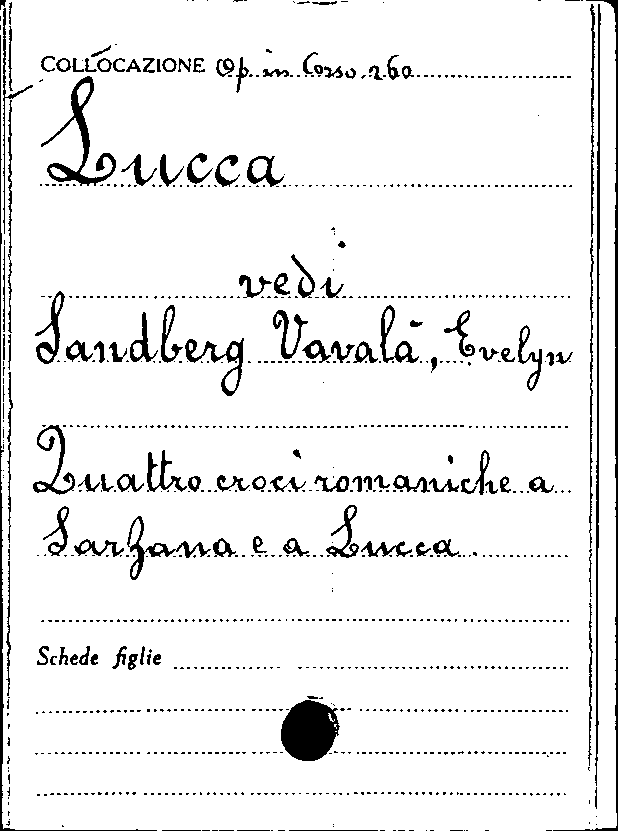 COLLOCAZIONE Op. in Corso 260
Lucca
vedi
Sandberg Vavalà, Evelyn
Quattro croci romaniche a
Sarzana e a Lucca.
Schede figlie